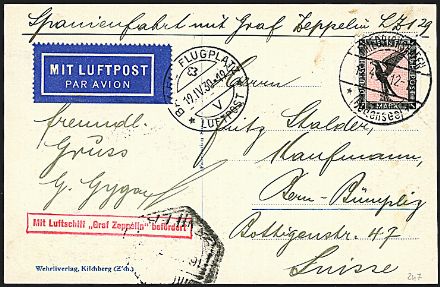 Spanienfahrt mit Graf Zeppelin LZ 129
MIT LUFTPOST
PAR AVION
FLUGPLATZ
19.IV.30
V
LUFTPOST
FRIEDRICHSHAFEN
(Bodensee)
MARK
Herrn
Fritz Stalder,
Kaufmann,
Bern-Bümpliz
Bottigenstr. 47
Suisse
freundl.
Gruss
G. Gygax
Mit Luftschiff „Graf Zeppelin" befördert
Wehrliverlag, Kilchberg (Z'ch.)
247